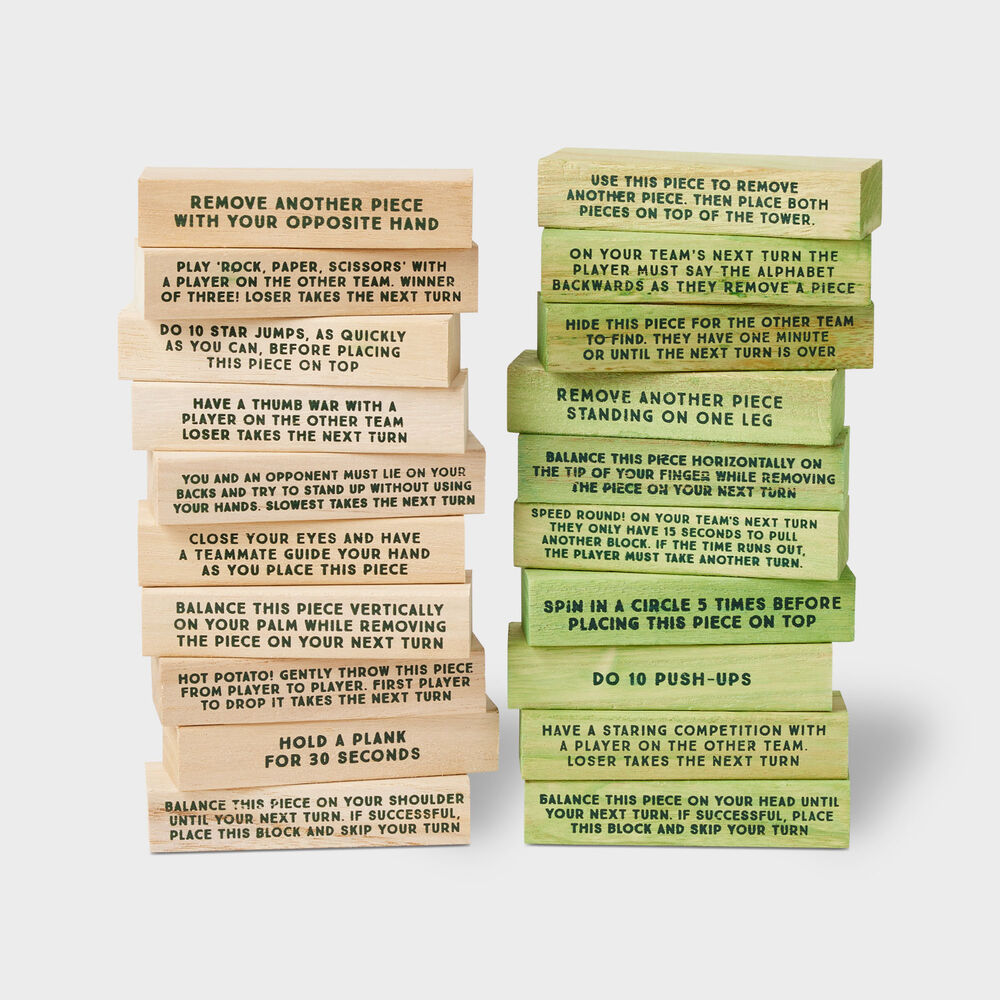 REMOVE ANOTHER PIECE
WITH YOUR OPPOSITE HAND
PLAY 'ROCK, PAPER, SCISSORS' WITH
A PLAYER ON THE OTHER TEAM. WINNER
OF THREE! LOSER TAKES THE NEXT TURN
DO 10 STAR JUMPS, AS QUICKLY
AS YOU CAN, BEFORE PLACING
THIS PIECE ON TOP
HAVE A THUMB WAR WITH A
PLAYER ON THE OTHER TEAM
LOSER TAKES THE NEXT TURN
YOU AND AN OPPONENT MUST LIE ON YOUR
BACKS AND TRY TO STAND UP WITHOUT USING
YOUR HANDS. SLOWEST TAKES THE NEXT TURN
CLOSE YOUR EYES AND HAVE
A TEAMMATE GUIDE YOUR HAND
AS YOU PLACE THIS PIECE
BALANCE THIS PIECE VERTICALLY
ON YOUR PALM WHILE REMOVING
THE PIECE ON YOUR NEXT TURN
HOT POTATO! GENTLY THROW THIS PIECE
FROM PLAYER TO PLAYER. FIRST PLAYER
TO DROP IT TAKES THE NEXT TURN
HOLD A PLANK
FOR 30 SECONDS
BALANCE THIS PIECE ON YOUR SHOULDER
UNTIL YOUR NEXT TURN. IF SUCCESSFUL,
PLACE THIS BLOCK AND SKIP YOUR TURN
USE THIS PIECE TO REMOVE
ANOTHER PIECE. THEN PLACE BOTH
PIECES ON TOP OF THE TOWER.
ON YOUR TEAM'S NEXT TURN THE
PLAYER MUST SAY THE ALPHABET
BACKWARDS AS THEY REMOVE A PIECE
HIDE THIS PIECE FOR THE OTHER TEAM
TO FIND. THEY HAVE ONE MINUTE
OR UNTIL THE NEXT TURN IS OVER
REMOVE ANOTHER PIECE
STANDING ON ONE LEG
BALANCE THIS PIECE HORIZONTALLY ON
THE TIP OF YOUR FINGER WHILE REMOVING
THE PIECE ON YOUR NEXT TURN
SPEED ROUND! ON YOUR TEAM'S NEXT TURN
THEY ONLY HAVE 15 SECONDS TO PULL
ANOTHER BLOCK. IF THE TIME RUNS OUT,
THE PLAYER MUST TAKE ANOTHER TURN.
SPIN IN A CIRCLE 5 TIMES BEFORE
PLACING THIS PIECE ON TOP
DO 10 PUSH-UPS
HAVE A STARING COMPETITION WITH
A PLAYER ON THE OTHER TEAM.
LOSER TAKES THE NEXT TURN
BALANCE THIS PIECE ON YOUR HEAD UNTIL
YOUR NEXT TURN. IF SUCCESSFUL, PLACE
THIS BLOCK AND SKIP YOUR TURN